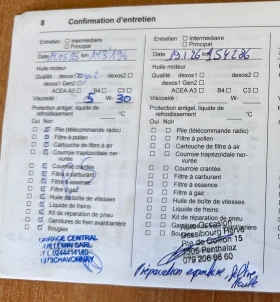 8 Confirmation d'entretien
Entretien : Intermédiaire
Principal
Date
km
Huile moteur
Qualité : dexos1 dexos2
dexos1 Gen2
ACEA A3 B4 C3
Viscosité : 5 W-30
Protection antigel, liquide de
refroidissement °C
Oui Non
Pile (télécommande radio)
Filtre à pollen
Cartouche de filtre à air
Courroie trapézoïdale ner-
vurée
Courroie crantée
Filtre à carburant
Filtre à essence
Filtre à gaz
Huile de boîte de vitesses
Liquide de freins
Kit de réparation de pneu
Garniture de freins
Bougies
GARAGE CENTRAL
1373 CHAVORNAY
Entretien : Intermédiaire
Principal
Date 19.1.26 km 154286
Huile moteur
Qualité : dexos1 dexos2
dexos1 Gen2
ACEA A3 B4 C3
Viscosité :
Protection antigel, liquide de
refroidissement °C
Oui Non
Pile (télécommande radio)
Filtre à pollen
Cartouche de filtre à air
Courroie trapézoïdale ner-
vurée
Courroie crantée
Filtre à carburant
Filtre à essence
Filtre à gaz
Huile de boîte de vitesses
Liquide de freins
Kit de réparation de pneu
Garniture de freins
Penthalaz
079 206 96 60
Préparation expertise